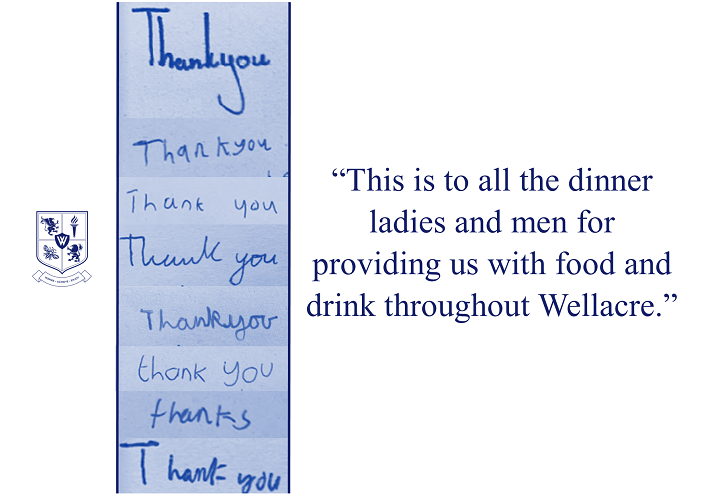 Thankyou
Thankyou
Thank you
Thank you
Thankyou
thank you
thanks
Thank you
W
“This is to all the dinner
ladies and men for
providing us with food and
drink throughout Wellacre.”